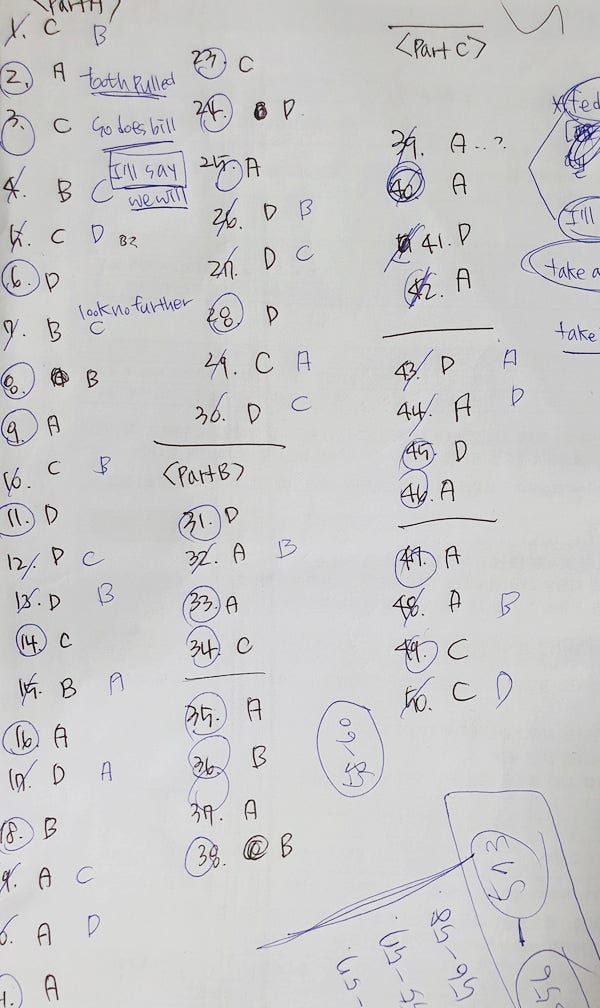 <Part A>
1. C B
2. A tooth pulled
3. C So does bill
I'll say
4. B C we will
5. C D B2
6. D
look no further
7. B C
8. B
9. A
10. C B
11. D
12. D C
13. D B
14. C
15. B A
16. A
17. D A
18. B
9. A C
0. A D
1. A
23. C
24. D
25. A
26. D B
27. D C
28. D
29. C A
30. D C
<Part B>
31. D
32. A B
33. A
34. C
35. A
36. B
37. A
38. B
<Part C>
39. A..?
40. A
41. D
42. A
43. D A
44. A D
45. D
46. A
47. A
48. A B
49. C
50. C D
I'll
take a
take